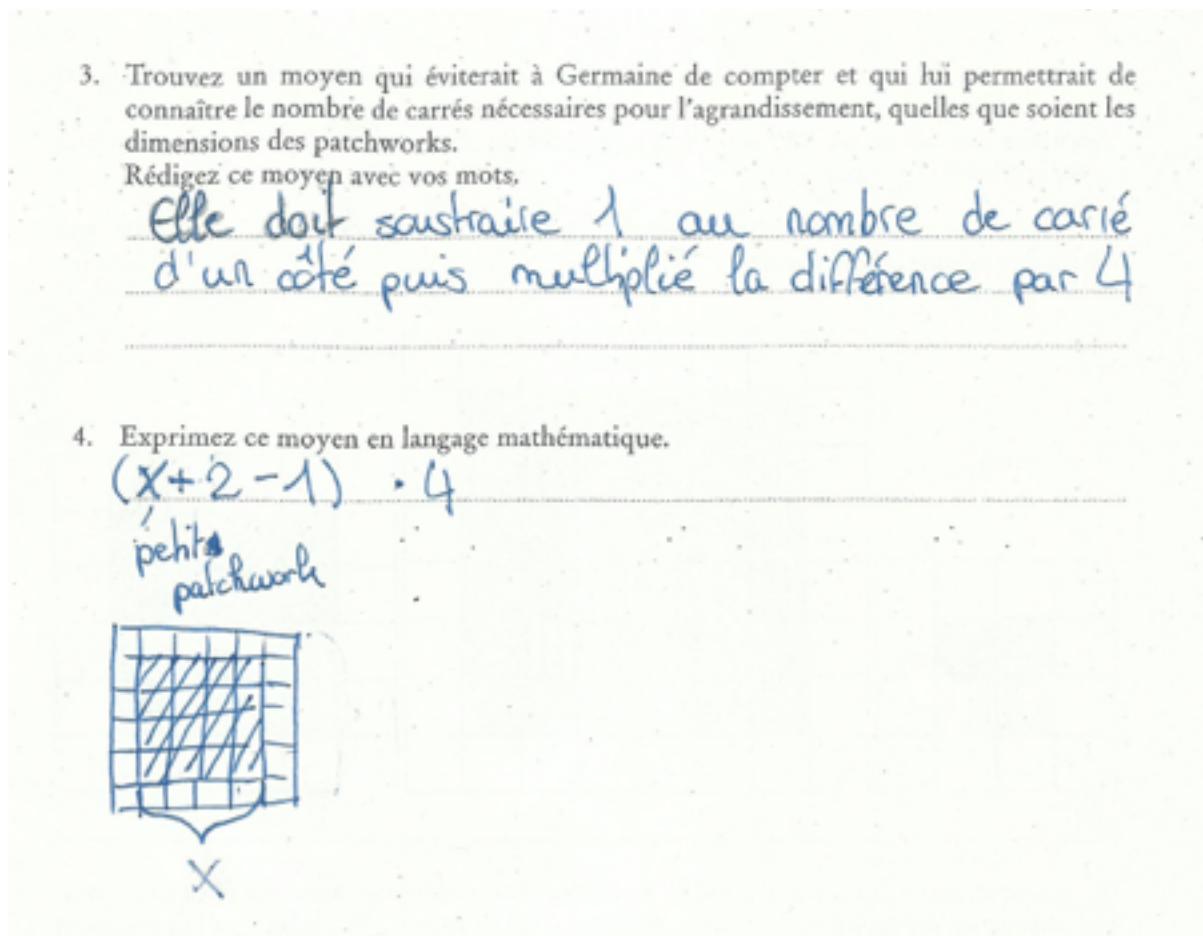 3. Trouvez un moyen qui éviterait à Germaine de compter et qui lui permettrait de
connaître le nombre de carrés nécessaires pour l'agrandissement, quelles que soient les
dimensions des patchworks.
Rédigez ce moyen avec vos mots.
Elle doit soustraire 1 au nombre de carré
d'un côté puis multiplié la différence par 4
4. Exprimez ce moyen en langage mathématique.
(x+2-1) · 4
petit
patchwork
X